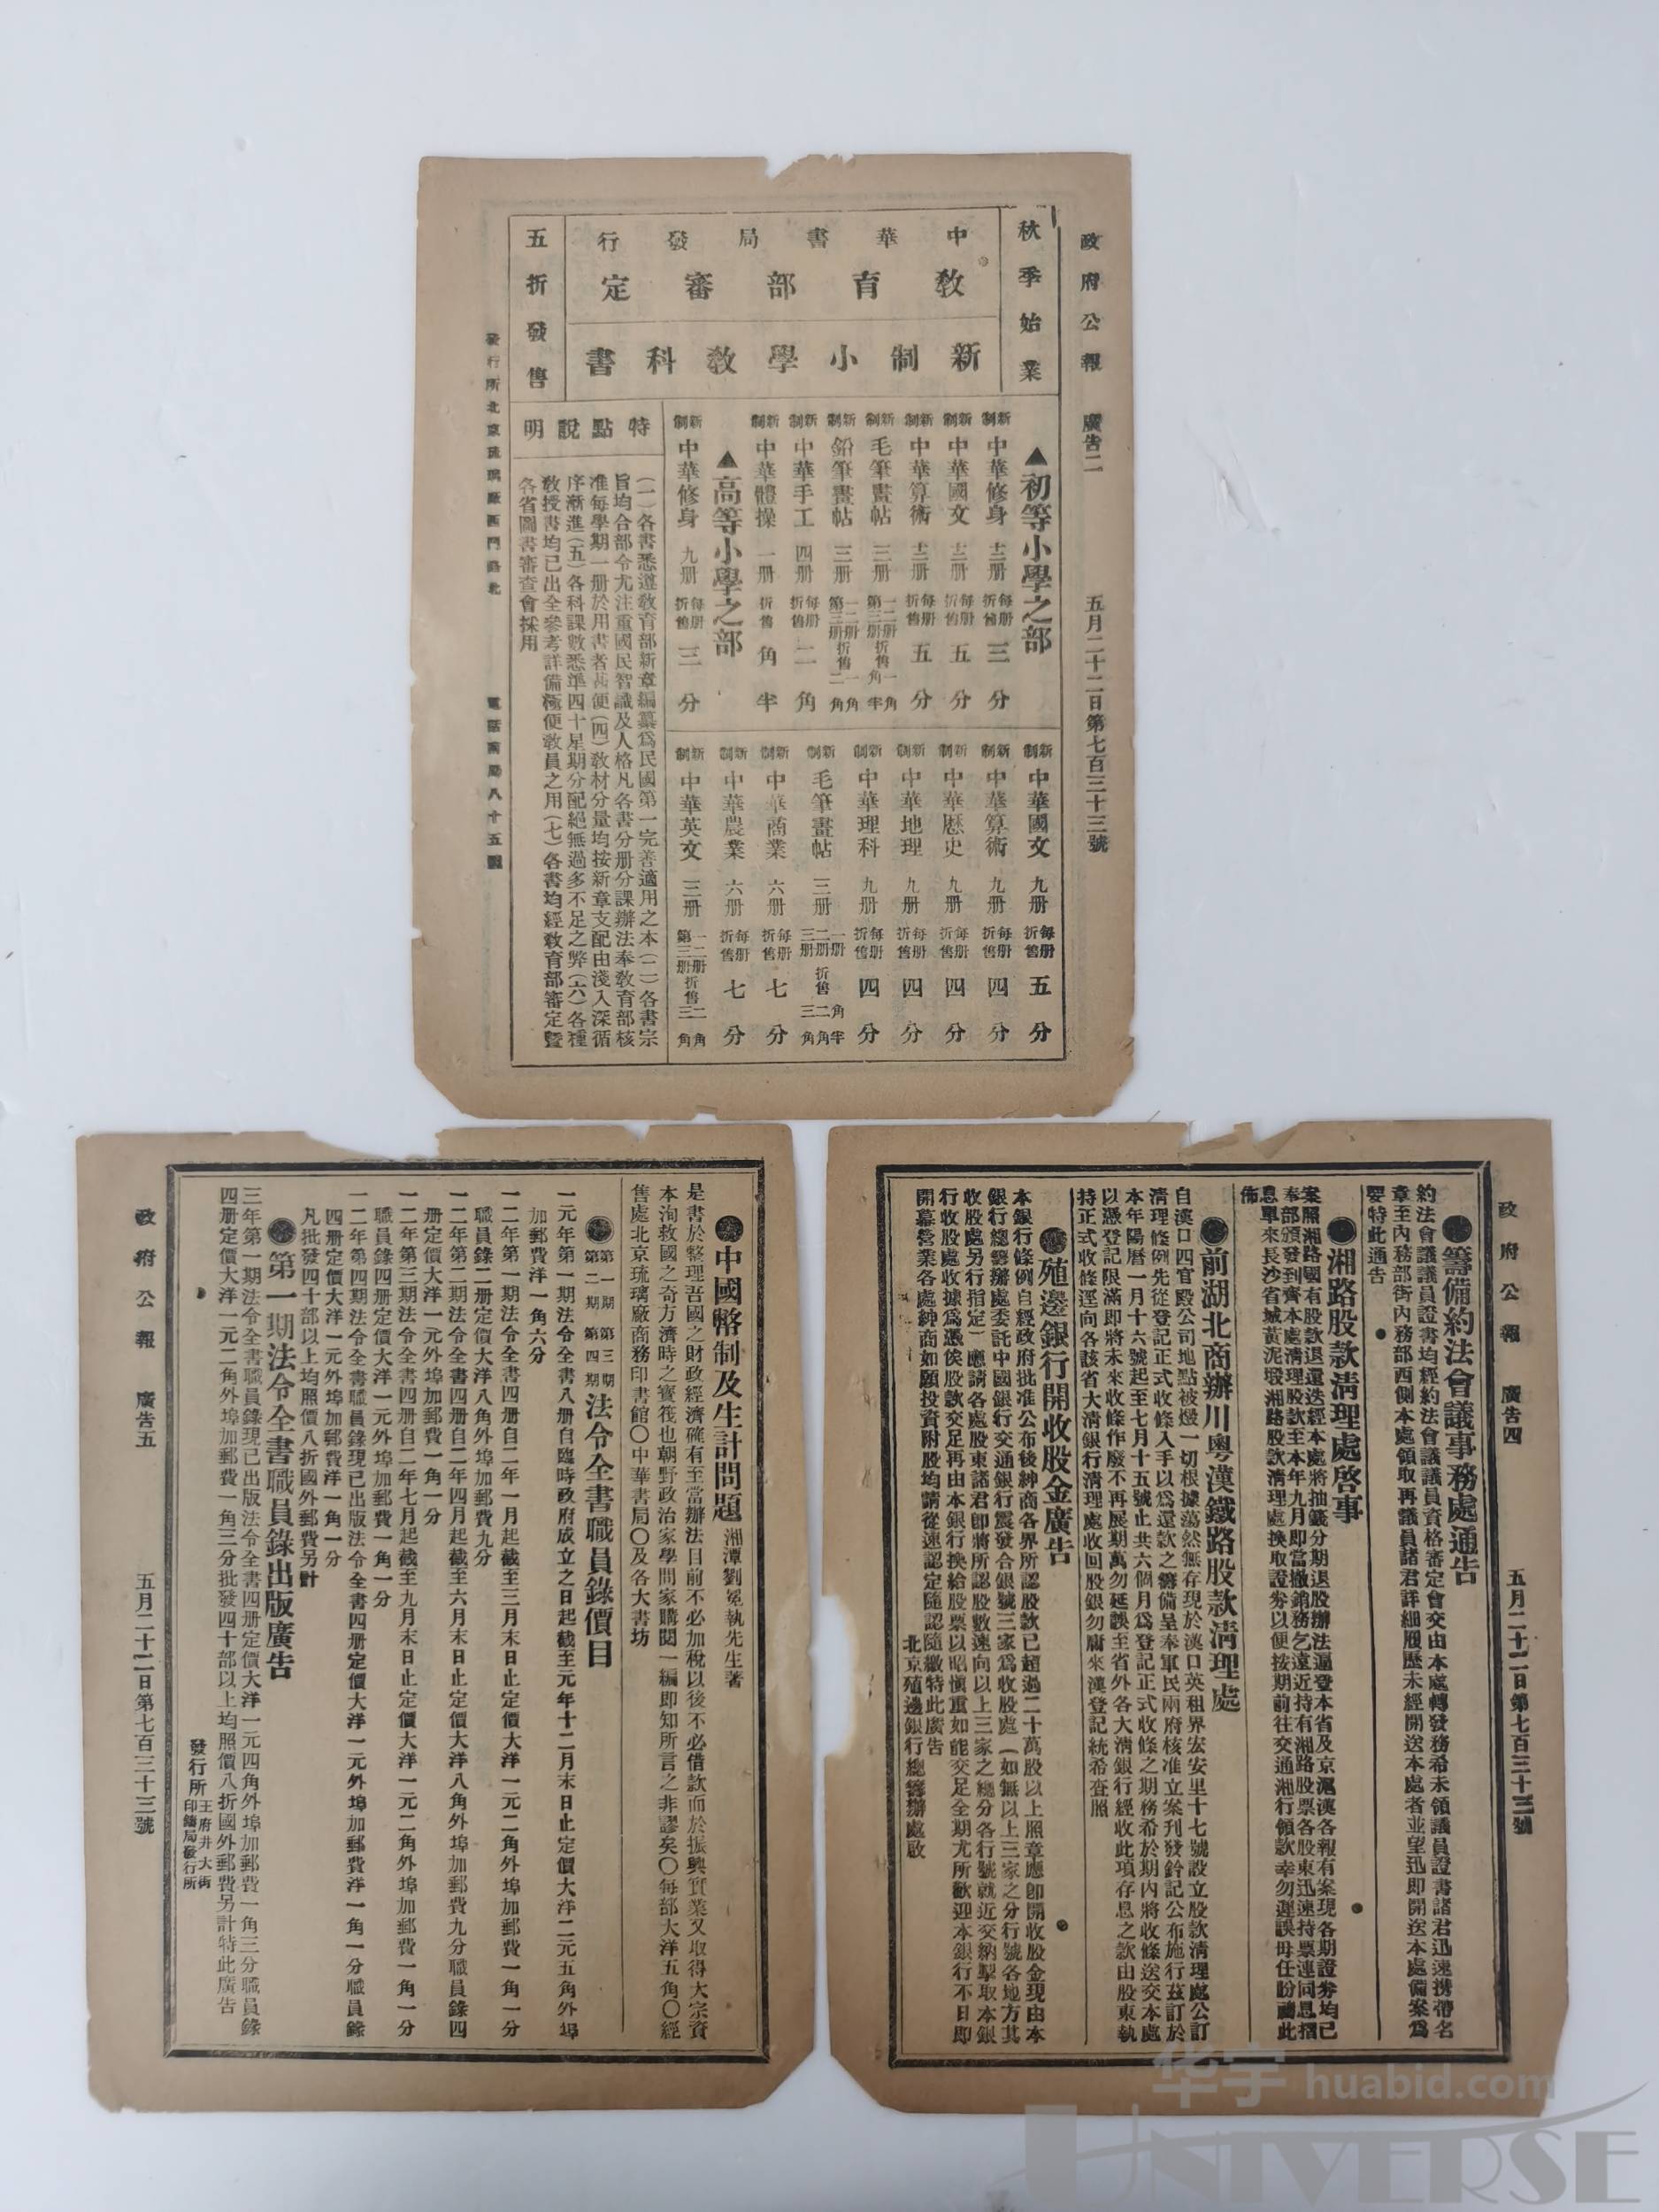 政府公報 廣告二 五月二十二日第七百三十三號
秋季始業
中華書局發行
教育部審定
新制小學教科書
五折發售
▲初等小學之部
新制中華修身 十二册 每册折售三分
新制中華國文 十二册 每册折售五分
新制中華算術 十二册 每册折售五分
新制毛筆畫帖 三册 一二册第三册折售一角一角半
新制鉛筆畫帖 三册 一二册第三册折售一角二角
新制中華手工 四册 每册折售二角
新制中華體操 一册 折售角半
▲高等小學之部
新制中華修身 九册 每册折售三分
新制中華國文 九册 每册折售五分
新制中華算術 九册 每册折售四分
新制中華歷史 九册 每册折售四分
新制中華地理 九册 每册折售四分
新制中華理科 九册 每册折售四分
新制毛筆畫帖 三册 一册二册三册折售角半二角三角
新制中華商業 六册 每册折售七分
新制中華農業 六册 每册折售七分
新制中華英文 三册 一二册第三册折售二角三角
特點說明
(一)各書悉遵教育部新章編纂爲民國第一完善適用之本(二)各書宗
旨均合部令尤注重國民智識及人格凡各書分册分課辦法奉教育部核
准每學期一册於用書者甚便(四)教材分量均按新章支配由淺入深循
序漸進(五)各科課數悉準四十星期分配絕無過多不足之弊(六)各種
教授書均已出全參考詳備極便教員之用(七)各書均經教育部審定曁
各省圖書審查會採用
發行所北京琉璃廠西門路北 電話南局八十五號
政府公報 廣告四 五月二十二日第七百三十三號
●籌備約法會議事務處通告
約法會議議員證書均經約法會議議員資格審定會交由本處轉發務希未領議員證書諸君迅速携帶名
章至內務部街內務部西側本處領取再議員諸君詳細履歷未經開送本處者並望迅即開送本處備案爲
要特此通告
●湘路股款清理處啓事
案照湘路國有股款退還迭經本處將抽籤分期退股辦法遍登本省及京滬漢各報有案現各期證券均已
奉部頒發到齊本處清理股款至本年九月即當撤銷務乞遠近持有湘路股票各股東迅速持票連同息摺
息單來長沙省城黃泥塅湘路股款清理處換取證券以便按期前往交通湘行領款幸勿遲誤毋任盼禱此
佈
●前湖北商辦川粵漢鐵路股款清理處
自漢口四官殿公司地點被燬一切根據蕩然無存現於漢口英租界宏安里十七號設立股款清理處公訂
清理條例先從登記正式收條入手以爲還款之籌備呈奉軍民兩府核准立案刊發鈐記公布施行茲訂於
本年陽曆一月十六號起至七月十五號止共六個月爲登記正式收條之期務希於期內將收條送交本處
以憑登記限滿即將未來收條作廢不再展期萬勿延誤至省外各大清銀行經收此項存息之款由股東執
持正式收條逕向各該省大清銀行清理處收回股銀勿庸來漢登記統希查照
●殖邊銀行開收股金廣告
本銀行條例自經政府批准公布後紳商各界所認股款已超過二十萬股以上照章應即開收股金現由本
銀行總籌辦處委託中國銀行交通銀行震發合銀號三家爲收股處(如無以上三家之分行號各地方其
收股處另行指定)應請各處股東諸君即將所認股數速向以上三家之總分各行號就近交納掣取本銀
行收股處收據爲憑俟股款交足再由本銀行換給股票以昭愼重如能交足全期尤所歡迎本銀行不日即
開幕營業各處紳商如願投資附股均請從速認定隨認隨繳特此廣告
北京殖邊銀行總籌辦處啟
●中國幣制及生計問題 湘潭劉冕執先生著
是書於整理吾國之財政經濟確有至當辦法目前不必加稅以後不必借款而於振興實業又取得大宗資
本洵救國之奇方濟時之寶筏也朝野政治家學問家購閱一編即知所言之非謬矣〇每部大洋五角〇經
售處北京琉璃廠商務印書館〇中華書局〇及各大書坊
●第一期第二期第三期第四期法令全書職員錄價目
一元年第一期法令全書八册自臨時政府成立之日起截至元年十二月末日止定價大洋二元五角外埠
加郵費洋一角六分
一二年第一期法令全書四册自二年一月起截至三月末日止定價大洋一元二角外埠加郵費一角一分
職員錄二册定價大洋八角外埠加郵費九分
一二年第二期法令全書四册自二年四月起截至六月末日止定價大洋八角外埠加郵費九分職員錄四
册定價大洋一元外埠加郵費一角一分
一二年第三期法令全書四册自二年七月起截至九月末日止定價大洋一元二角外埠加郵費一角一分
職員錄四册定價大洋一元外埠加郵費一角一分
一二年第四期法令全書職員錄現已出版法令全書四册定價大洋一元外埠加郵費洋一角一分職員錄
四册定價大洋一元外埠加郵費洋一角一分
凡批發四十部以上均照價八折國外郵費另計
●第一期法令全書職員錄出版廣告
三年第一期法令全書職員錄現已出版法令全書四册定價大洋一元四角外埠加郵費一角三分職員錄
四册定價大洋一元二角外埠加郵費一角三分批發四十部以上均照價八折國外郵費另計特此廣告
發行所 王府井大街印鑄局發行所
政府公報 廣告五 五月二十二日第七百三十三號
华宇 huabid.com
UNIVERSE